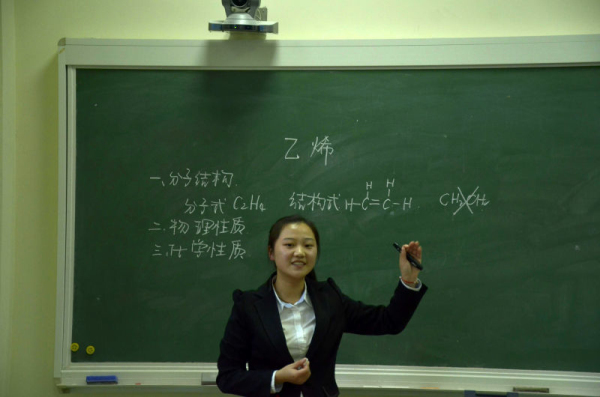 乙烯
一.分子结构.
分子式 C2H4 结构式 H-C=C-H CH2CH2
H H
二.物理性质
三.化学性质